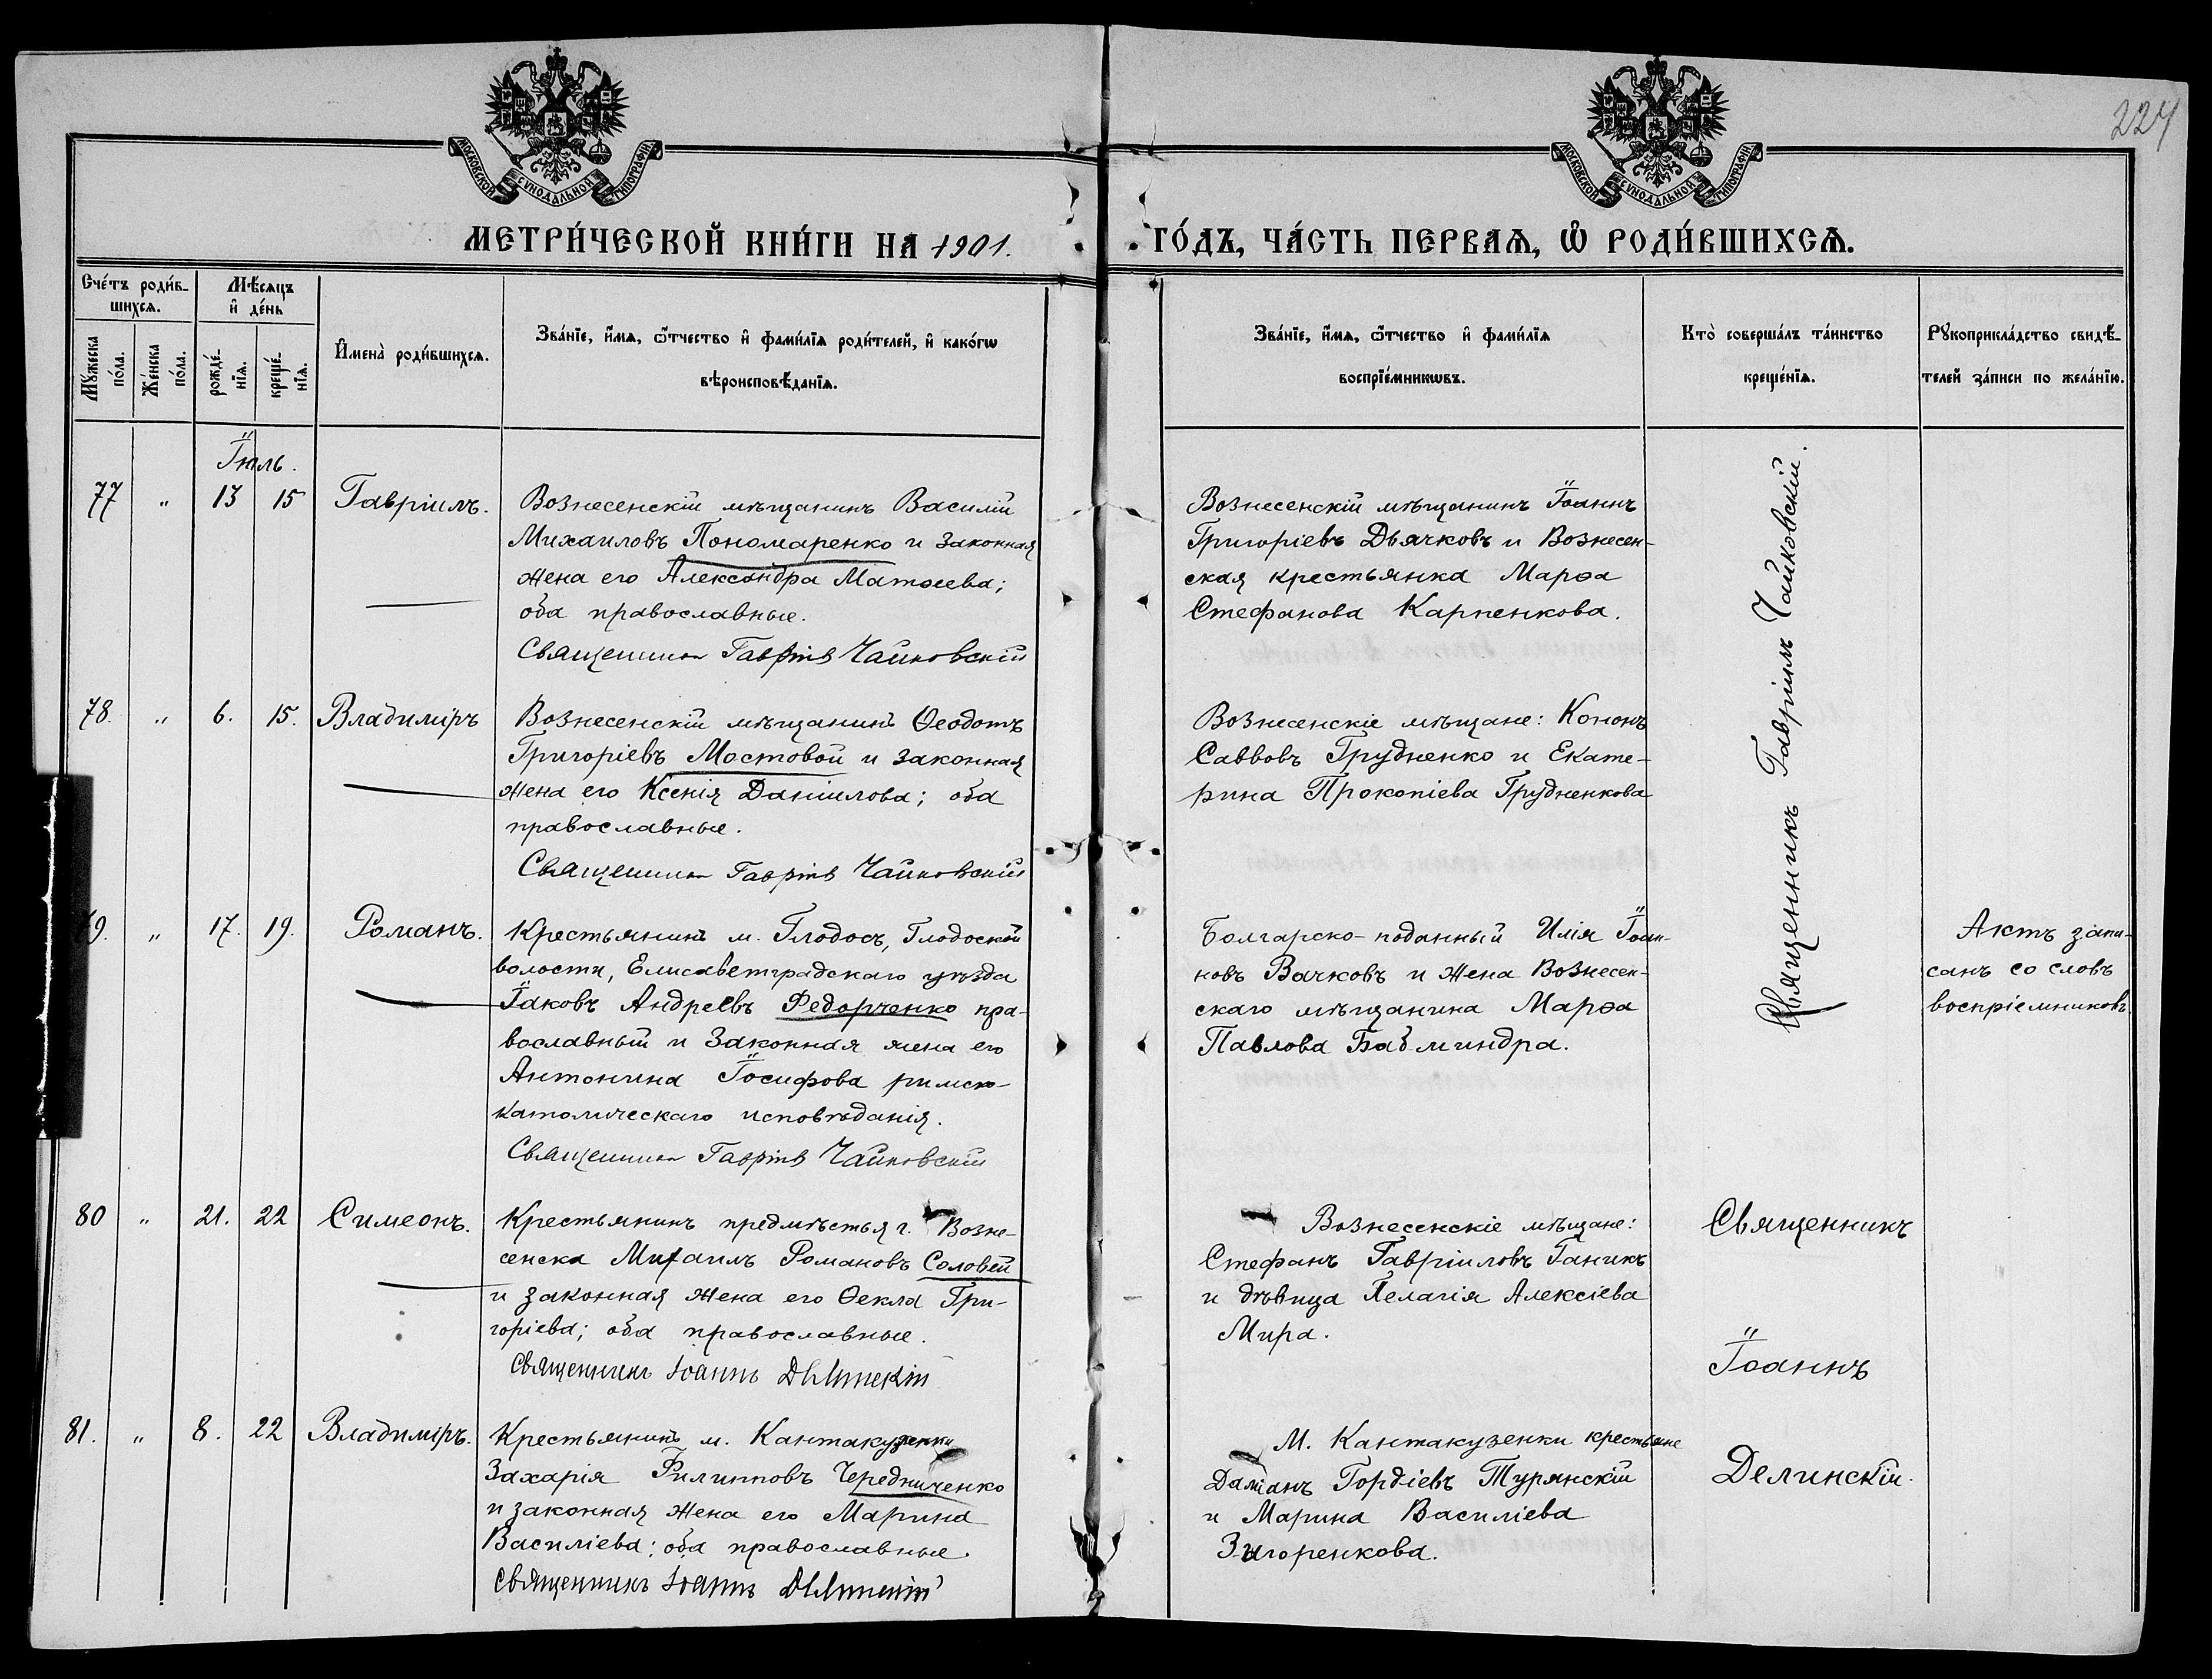 224
МОСКОВСКОЙ СУНОДАЛЬНОЙ ТИПОГРАФІИ
МОСКОВСКОЙ СУНОДАЛЬНОЙ ТИПОГРАФІИ
МЕТРИ́ЧЕСКОЙ КНИ́ГИ НА 1901.
ГО́ДЪ, ЧА́СТЬ ПЕРВАѦ, Ѡ РОДИ́ВШИХСѦ.
Сче́тъ роди́в-
шихсѧ.
Му́жеска
по́ла.
Же́нска
по́ла.
Мѣ́сѧцъ
и҆ де́нь
рожде́-
нїѧ.
креще́-
нїѧ.
И҆мена̀ роди́вшихсѧ.
Зва́нїе, и҆́мѧ, ѻ҆́тчество и҆ фами́лїѧ роди́телей, и҆ како́гѡ
вѣроисповѣ́данїѧ.
Зва́нїе, и҆́мѧ, ѻ҆́тчество и҆ фами́лїѧ
воспрїе́мникѡвъ.
Кто̀ соверша́лъ та́инство
креще́нїѧ.
Рꙋкоприкла́дство свидѣ́-
телей за́писи по жела́нїю.
Іюль.
77 " 13 15 Гавріилъ.
Вознесенскій мѣщанинъ Василій
Михаиловъ Пономаренко и законная
жена его Александра Матѳеева;
оба православные.
Священникъ Гавріилъ Чайковскій
Вознесенскій мѣщанинъ Іоаннъ
Григоріевъ Дьячковъ и Вознесен-
ская крестьянка Марѳа
Стефанова Карпенкова.
Священникъ Гавріилъ Чайковскій.
78. " 6. 15. Владиміръ
Вознесенскій мѣщанинъ Ѳеодотъ
Григоріевъ Мостовой и законная
жена его Ксенія Даніилова; оба
православные.
Священникъ Гавріилъ Чайковскій
Вознесенскіе мѣщане: Кононъ
Саввовъ Грудненко и Екате-
рина Прокопіева Грудненкова
79. " 17. 19. Романъ.
Крестьянинъ м. Глодосъ, Глодоской
волости, Елисаветградскаго уѣзда
Іаковъ Андреевъ Федорченко пра-
вославный и законная жена его
Антонина Іосифова римско-
католическаго исповѣданія.
Священникъ Гавріилъ Чайковскій
Болгарско-поданный Илія Іоан-
новъ Вачковъ и жена Вознесен-
скаго мѣщанина Марѳа
Павлова Бабминдра.
Актъ запи-
санъ со словъ
воспріемниковъ.
80 " 21. 22 Симеонъ.
Крестьянинъ предмѣстья г. Возне-
сенска Михаилъ Романовъ Соловей
и законная жена его Ѳекла Гри-
горіева; оба православные.
Священникъ Іоаннъ Делинскій
Вознесенскіе мѣщане:
Стефанъ Гавріиловъ Ганикъ
и дѣвица Пелагія Алексіева
Мира.
Священникъ
Іоаннъ
Делинскій.
81. " 8. 22 Владиміръ.
Крестьянинъ м. Кантакузенки
Захарія Филипповъ Чередниченко
и законная жена его Марина
Василіева: оба православные.
Священникъ Іоаннъ Делинскій
М. Кантакузенки крестьяне
Даміанъ Гордіевъ Турянскій
и Марина Василіева
Зигоренкова.